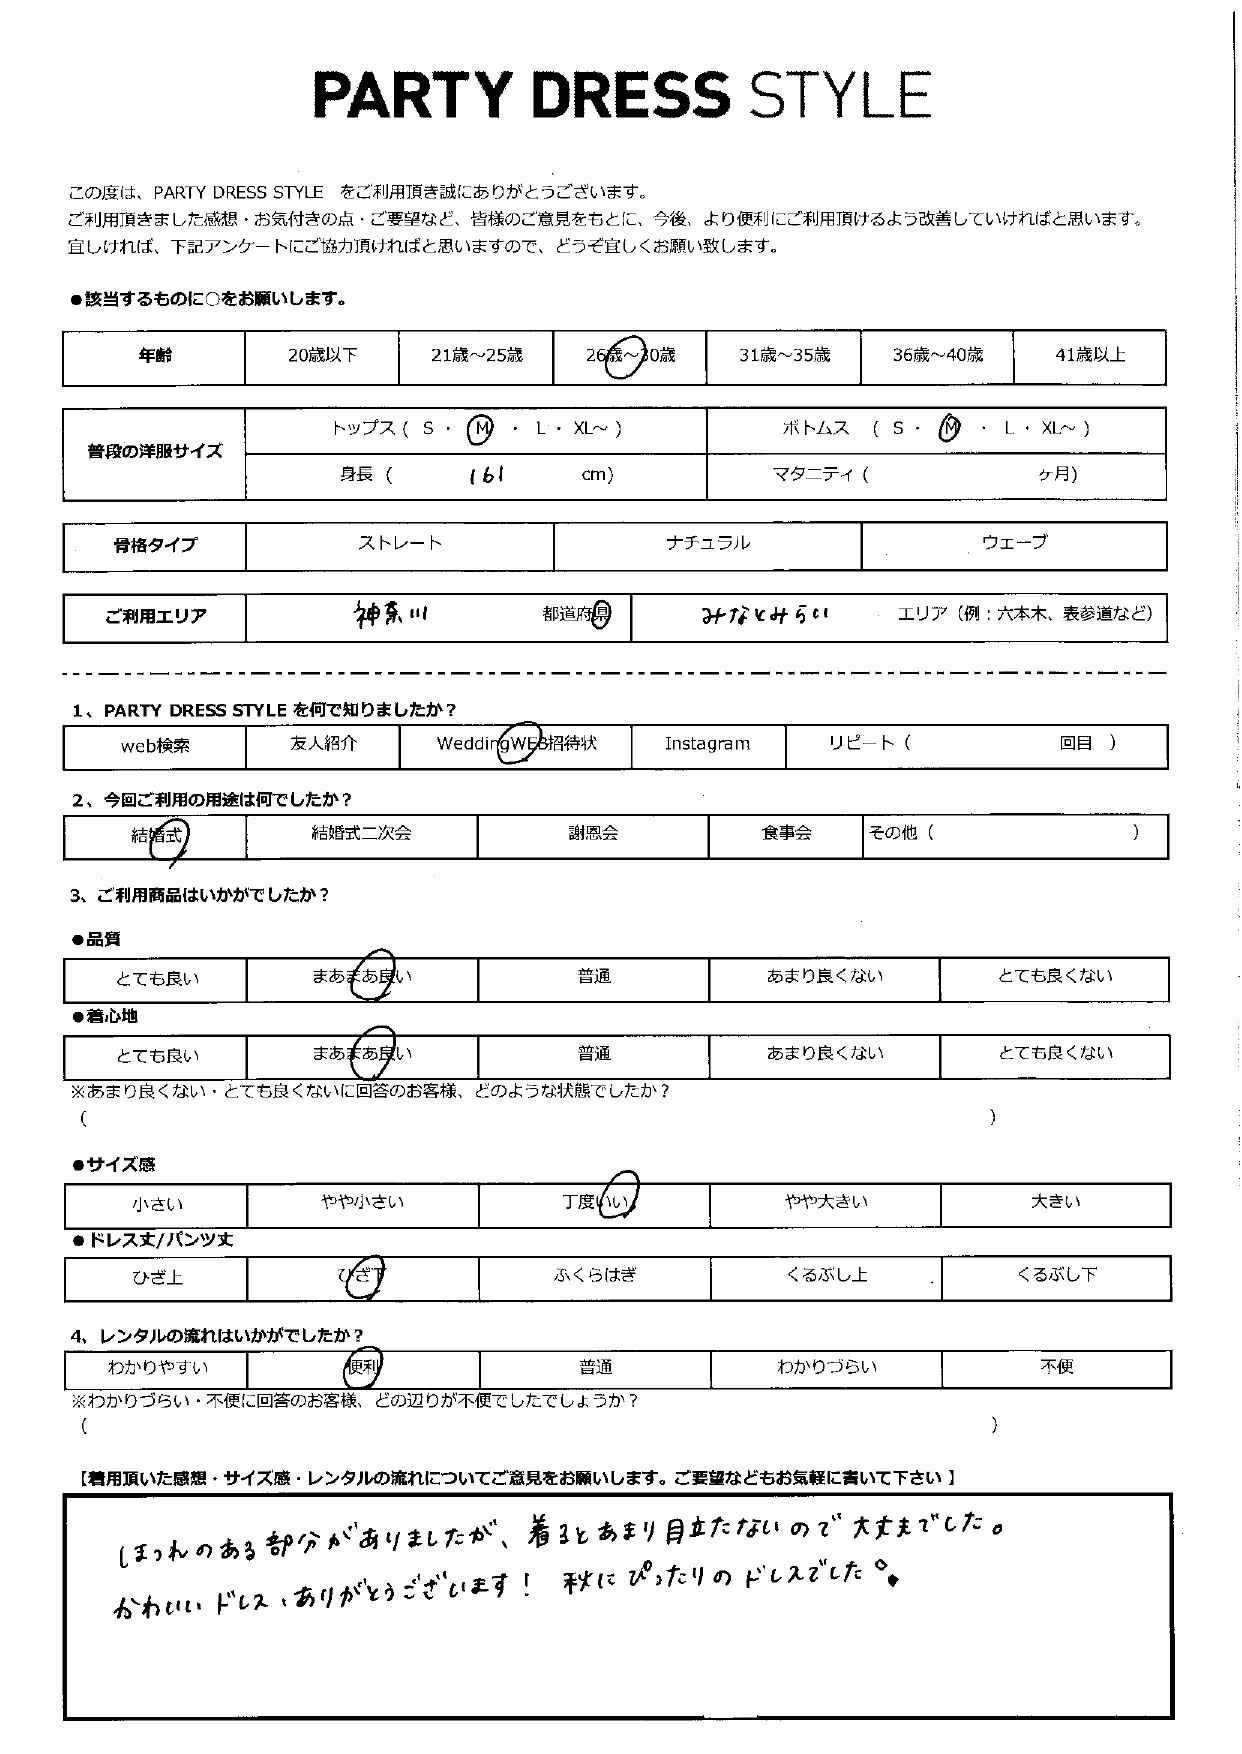 PARTY DRESS STYLE
この度は、PARTY DRESS STYLE をご利用頂き誠にありがとうございます。
ご利用頂きました感想・お気付きの点・ご要望など、皆様のご意見をもとに、今後、より便利にご利用頂けるよう改善していければと思います。
宜しければ、下記アンケートにご協力頂ければと思いますので、どうぞ宜しくお願い致します。
●該当するものに○をお願いします。
年齢 20歳以下 21歳～25歳 26歳～30歳 31歳～35歳 36歳～40歳 41歳以上
普段の洋服サイズ トップス ( S ・ M ・ L ・ XL～ ) ボトムス ( S ・ M ・ L ・ XL～ )
身長 ( 161 cm) マタニティ ( ヶ月)
骨格タイプ ストレート ナチュラル ウェーブ
ご利用エリア 神奈川 都道府県 みなとみらい エリア（例：六本木、表参道など）
1、PARTY DRESS STYLE を何で知りましたか？
web検索 友人紹介 WeddingWEB招待状 Instagram リピート ( 回目 )
2、今回ご利用の用途は何でしたか？
結婚式 結婚式二次会 謝恩会 食事会 その他 ( )
3、ご利用商品はいかがでしたか？
●品質
とても良い まあまあ良い 普通 あまり良くない とても良くない
●着心地
とても良い まあまあ良い 普通 あまり良くない とても良くない
※あまり良くない・とても良くないに回答のお客様、どのような状態でしたか？
( )
●サイズ感
小さい やや小さい 丁度いい やや大きい 大きい
●ドレス丈/パンツ丈
ひざ上 ひざ下 ふくらはぎ くるぶし上 くるぶし下
4、レンタルの流れはいかがでしたか？
わかりやすい 便利 普通 わかりづらい 不便
※わかりづらい・不便に回答のお客様、どの辺りが不便でしたでしょうか？
( )
【着用頂いた感想・サイズ感・レンタルの流れについてご意見をお願いします。ご要望などもお気軽に書いて下さい 】
ほつれのある部分がありましたが、着るとあまり目立たないので大丈夫でした。
かわいいドレス、ありがとうございます！ 秋にぴったりのドレスでした。